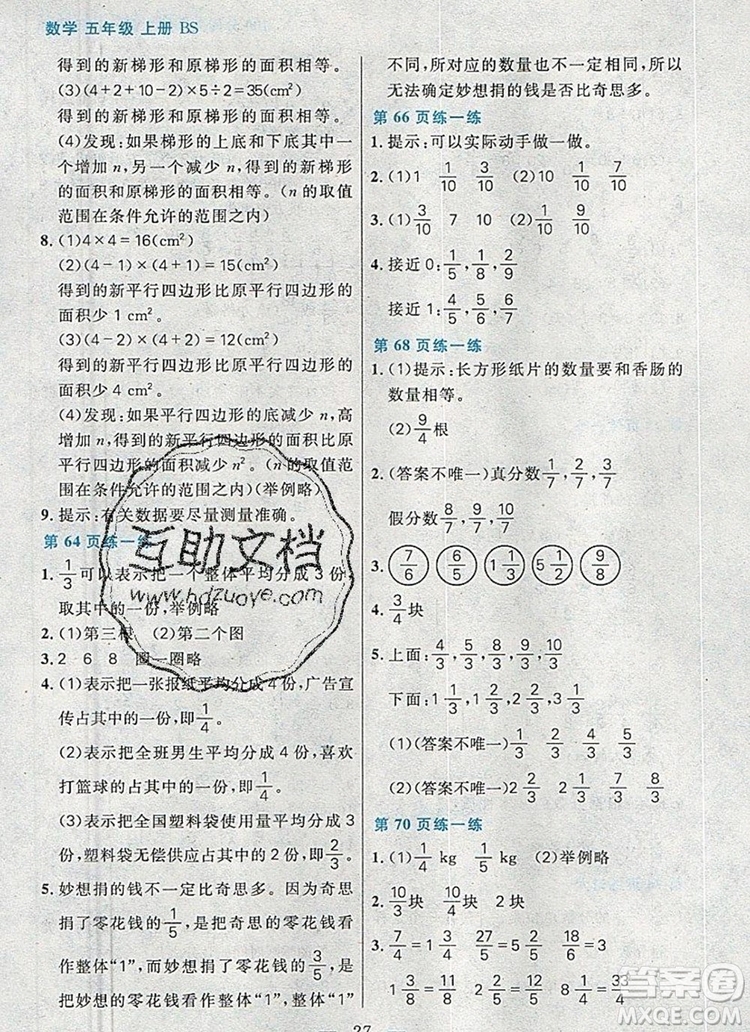 数学 五年级 上册 BS
得到的新梯形和原梯形的面积相等。
(3)(4+2+10-2)×5÷2=35(cm²)
得到的新梯形和原梯形的面积相等。
(4)发现:如果梯形的上底和下底其中一
个增加 n,另一个减少 n,得到的新梯形
的面积和原梯形的面积相等。(n 的取值
范围在条件允许的范围之内)
8. (1)4×4=16(cm²)
(2)(4-1)×(4+1)=15(cm²)
得到的新平行四边形比原平行四边形的
面积少 1 cm²。
(3)(4-2)×(4+2)=12(cm²)
得到的新平行四边形比原平行四边形的
面积少 4 cm²。
(4)发现:如果平行四边形的底减少 n,高
增加 n,得到的新平行四边形的面积比原
平行四边形的面积减少 n²。(n 的取值范
围在条件允许的范围之内)(举例略)
9. 提示:有关数据要尽量测量准确。
第 64 页练一练
1. 1/3 可以表示把一个整体平均分成 3 份,
取其中的一份,举例略
2. (1)第三根 (2)第二个图
3. 2 6 8 圈一圈略
4. (1)表示把一张报纸平均分成 4 份,广告宣
传占其中的一份,即 1/4。
(2)表示把全班男生平均分成 4 份,喜欢
打篮球的占其中的一份,即 1/4。
(3)表示把全国塑料袋使用量平均分成 3
份,塑料袋无偿供应占其中的一份,即 1/3。
5. 妙想捐的钱不一定比奇思多。因为奇思
捐了零花钱的 1/5,是把奇思的零花钱看
作整体“1”,而妙想捐了零花钱的 3/5,是把
妙想的零花钱看作整体“1”,整体“1”
不同,所对应的数量也不一定相同,所以
无法确定妙想捐的钱是否比奇思多。
第 66 页练一练
1. 提示:可以实际动手做一做。
2. (1)1 1/10 3/10 (2)10 1/10 1/10
3. (1)3/10 7 10 (2)1/10 7/10 9/10
4. 接近 0: 1/5, 1/8, 2/9
接近 1: 4/5, 5/6, 6/7
第 68 页练一练
1. (1)提示:长方形纸片的数量要和香肠的
数量相等。
(2) 9/4 根
2. (答案不唯一)真分数 1/7, 2/7, 3/7
假分数 8/7, 9/7, 10/7
3. 7/6 6/5 1/1 5/5 9/8
4. 3/4 块
5. 上面: 4/3, 5/3, 7/3, 8/3
下面: 1 1/3, 1 2/3, 2 1/3, 2 2/3
(1)(答案不唯一) 4/3 5/3 7/3
(2)(答案不唯一) 2 2/3 2 1/3 1 2/3
第 70 页练一练
1. (1) 1/4 kg 5/4 kg (2)举例略
2. 10/3 块 2/3 块 4/3 块
3. 7/4=1 3/4 27/5=5 2/5 13/6=2 1/6
87/10=8 7/10 45/15=3
27
互助文档
www.hdzuoye.com
答案圈
MXQE.COM